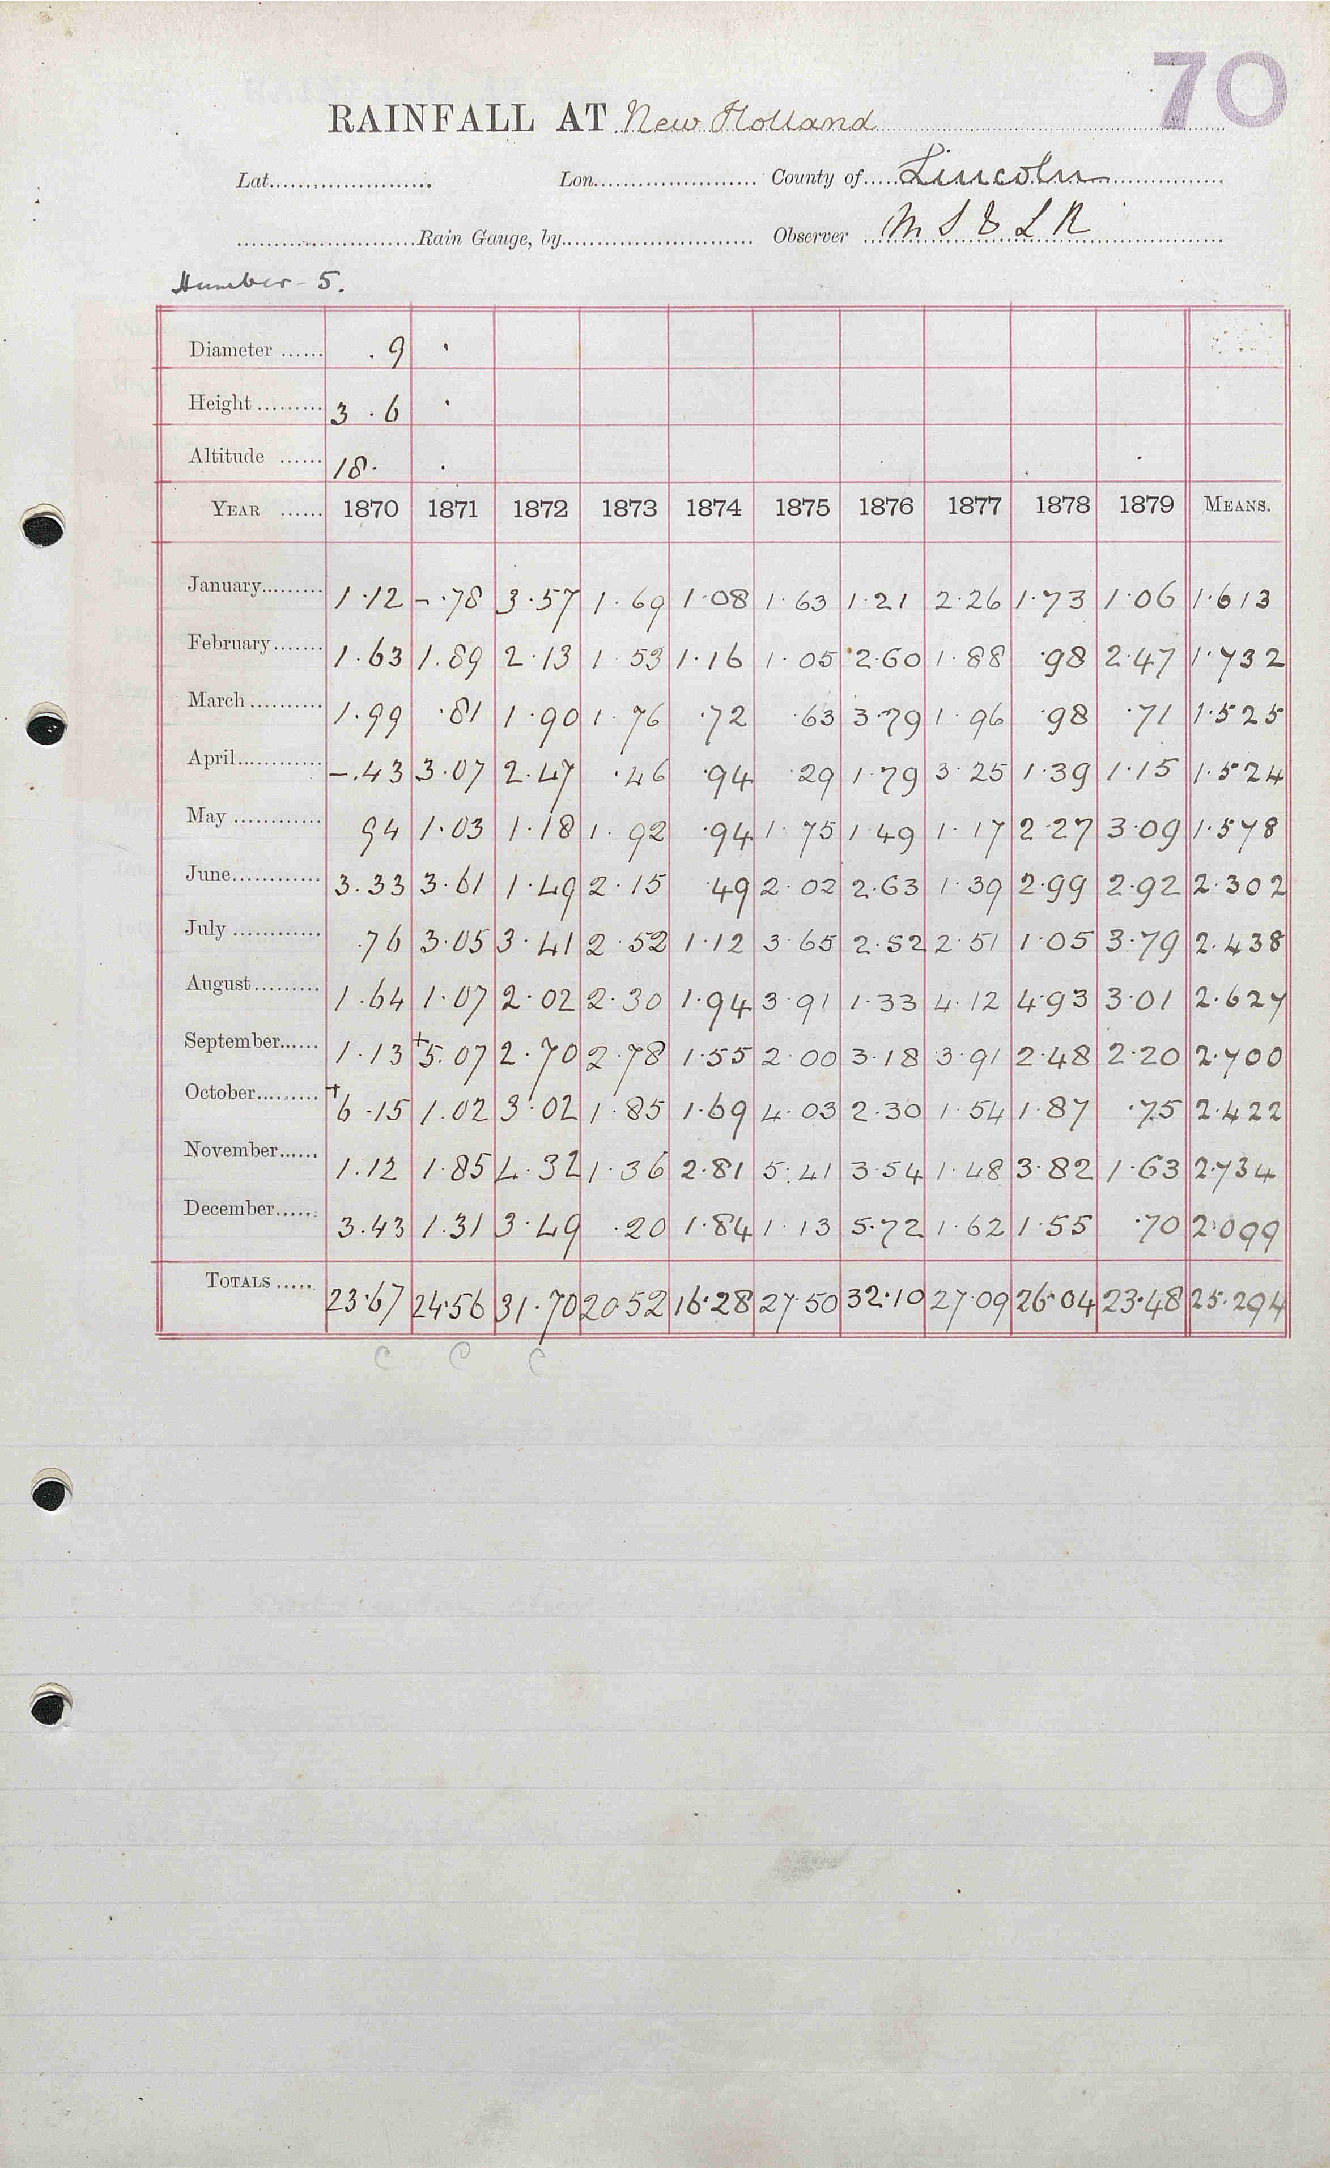 70
RAINFALL AT New Holland
Lat. Lon. County of Lincoln
Rain Gauge, by Observer M S & L R
Humber - 5.
Diameter . 9 .
Height 3 . 6 .
Altitude 18. .
YEAR 1870 1871 1872 1873 1874 1875 1876 1877 1878 1879 MEANS.
January 1.12 -.78 3.57 1.69 1.08 1.63 1.21 2.26 1.73 1.06 1.613
February 1.63 1.89 2.13 1 53 1.16 1.05 2.60 1.88 .98 2.47 1.732
March 1.99 .81 1.90 1.76 .72 .63 3.79 1.96 .98 .71 1.525
April -.43 3.07 2.47 .46 .94 .29 1.79 3 25 1.39 1.15 1.524
May 94 1.03 1.18 1.92 .94 1.75 1.49 1.17 2 27 3.09 1.578
June 3.33 3.61 1.49 2.15 .49 2.02 2.63 1.39 2.99 2.92 2.302
July .76 3.05 3.41 2.52 1.12 3.65 2.52 2.51 1.05 3.79 2.438
August 1.64 1.07 2.02 2.30 1.94 3.91 1.33 4.12 4.93 3.01 2.627
September 1.13 +5.07 2.70 2.78 1.55 2.00 3.18 3.91 2.48 2.20 2.700
October +6.15 1.02 3.02 1.85 1.69 4.03 2.30 1.54 1.87 .75 2.422
November 1.12 1.85 4.32 1.36 2.81 5.41 3.54 1.48 3.82 1.63 2.734
December 3.43 1.31 3.49 .20 1.84 1.13 5.72 1.62 1.55 .70 2.099
TOTALS 23.67 24.56 31.70 20.52 16.28 27.50 32.10 27.09 26.04 23.48 25.294
C C C